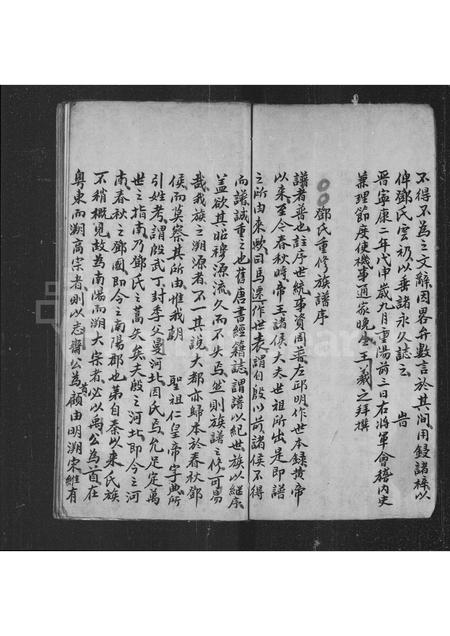 不得不為之文辭因畧弁數言於其間用鋟諸梓以
俾鄧氏雲礽以垂諸永久誌之 旹
晉寧康二年代中歲九月重陽前三日右將軍會稽內史
兼理節度使機事通家晚生王羲之拜撰
鄧氏重修族譜序
譜者普也註序世統事資周普左邱明作世本錄黃帝
以來至今春秋時帝王諸侯大夫世祖所出是即譜
之所由來歟司馬遷作世表謂自殷以前諸侯不得
而譜誠重之也舊唐書經籍誌謂譜以紀世族以繼序
蓋欲其昭穆源流久而不失焉然則族譜之修可易
哉我族之溯源者不一其說大都亦歸本於春秋鄧
侯而莫察其所由惟我朝 聖祖仁皇帝字典所
引姓考謂殷武丁封季父曼河北因氏焉允足定萬
世之指南乃鄧氏之蒿矣夫殷之河北即今之河
南春秋之鄧國即今之南陽郡也第自秦以來氏族
不稍概見故為南陽而溯大宗者必以禹公為首在
粵東而溯高宗者則以志齋公為首顧由明溯宋維有